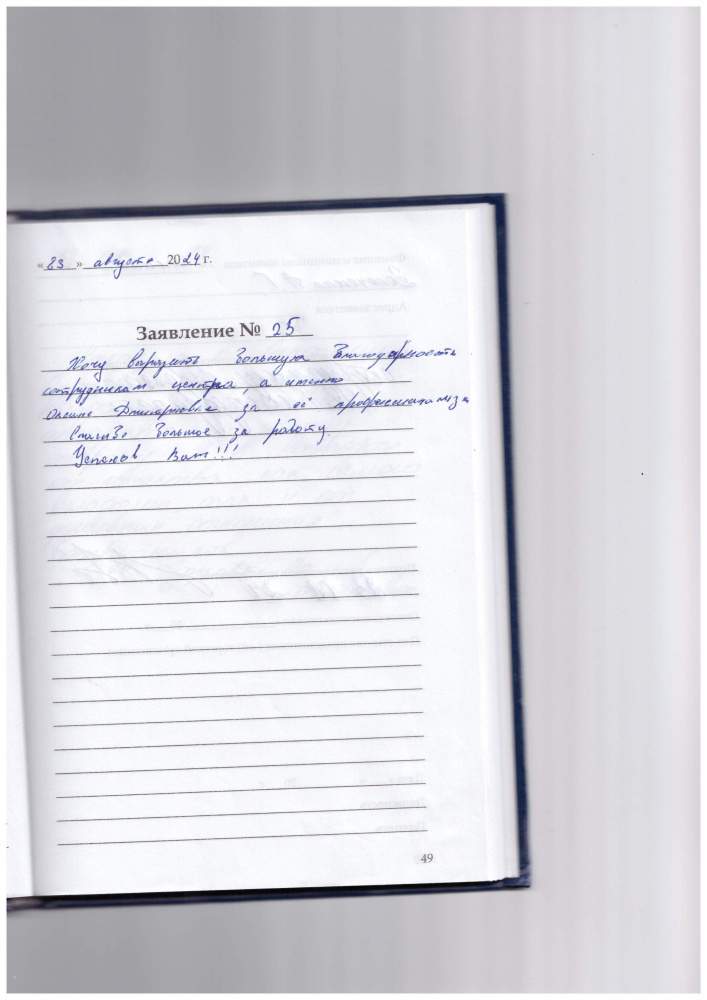 «23» августа 2024 г.
Заявление № 25
Хочу выразить большую благодарность
сотрудникам центра, а именно
за её профессионализм
Спасибо большое за работу.
Успехов Вам!!!
49